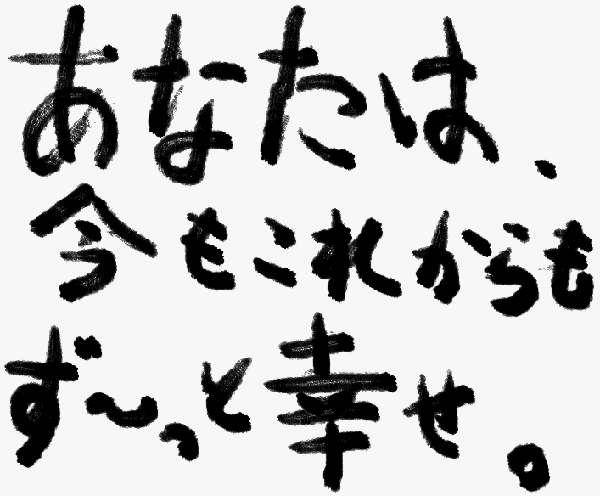 あなたは、
今もこれからも
ず〜っと幸せ。